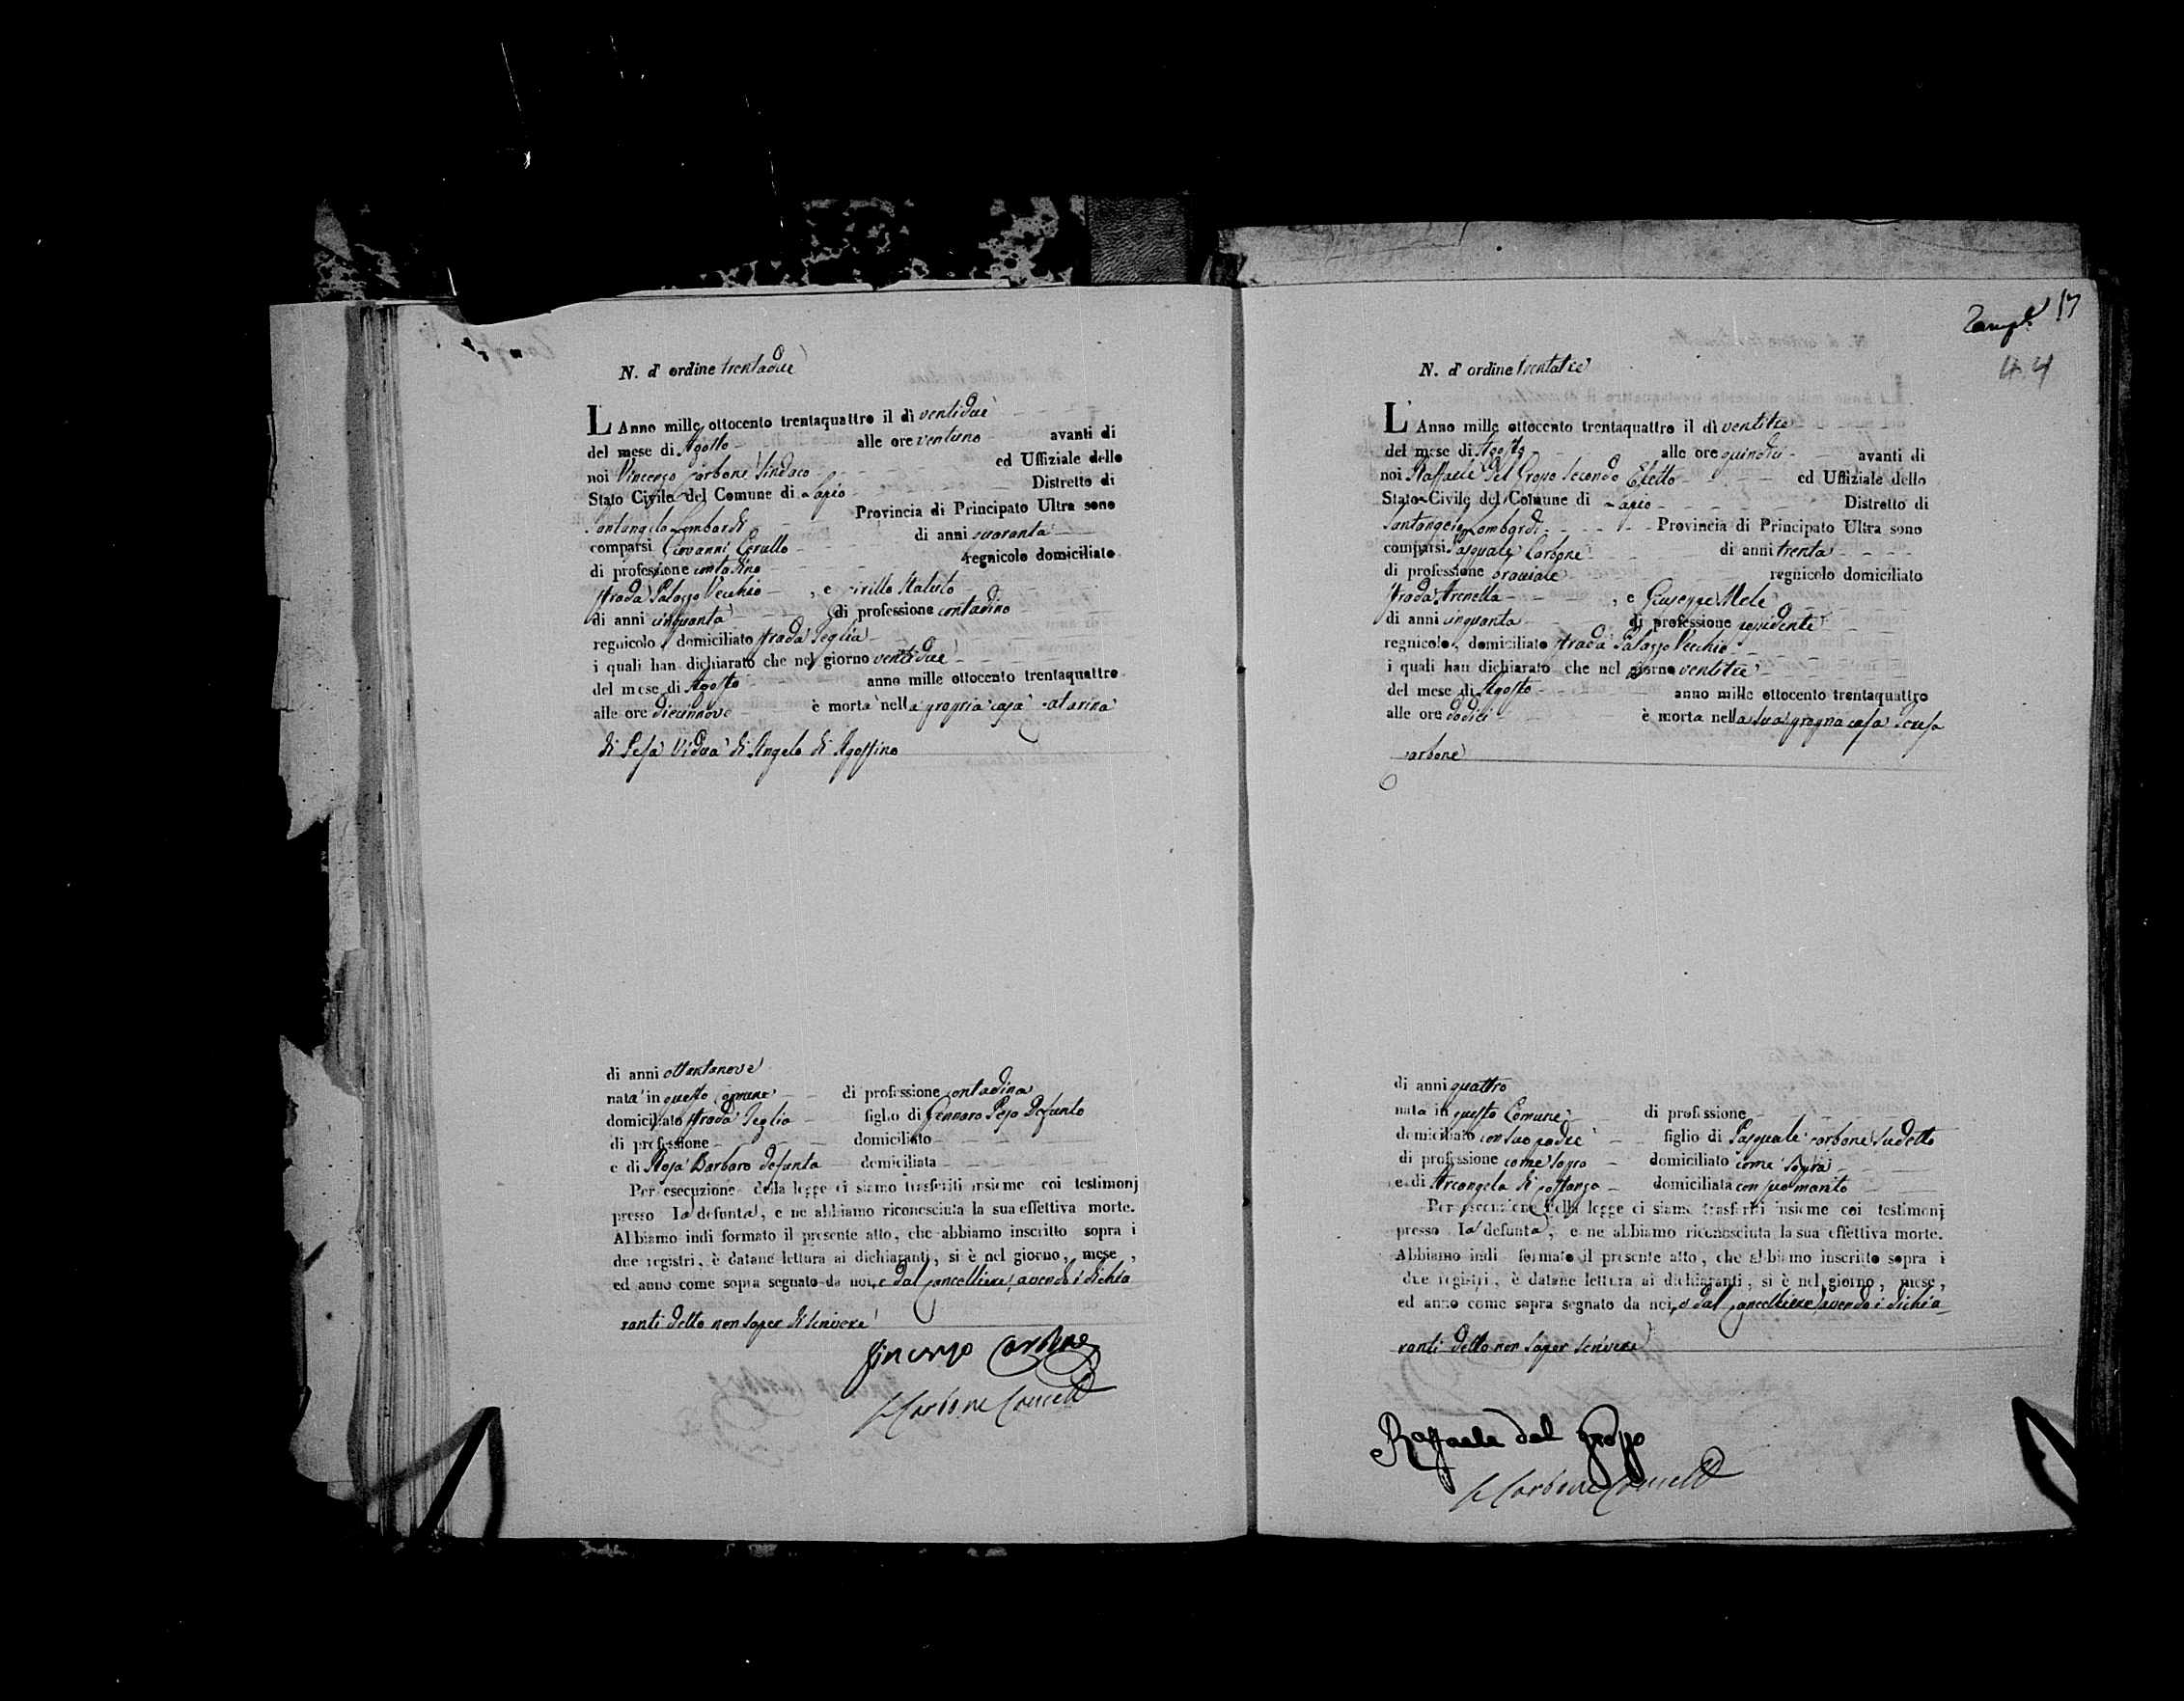 N. d' ordine trentadue
L'Anno mille ottocento trentaquattro il dì ventidue
del mese di Agosto alle ore ventuno avanti di
noi Vincenzo Carbone Sindaco ed Uffiziale dello
Stato Civile del Comune di Lapio Distretto di
Santangelo Lombardi Provincia di Principato Ultra sono
comparsi Giovanni Cerullo di anni quaranta
di professione contadino regnicolo domiciliato
strada Palazzo Vecchio , e Cirillo
di anni cinquanta di professione contadino
regnicolo , domiciliato strada Seglia
i quali han dichiarato che nel giorno ventidue
del mese di Agosto anno mille ottocento trentaquattro
alle ore diecinnove è morta nella propria casa Catarina
di Pesa Vidua di Angelo di Agostino
di anni ottantanove
nata in questo Comune di professione contadina
domiciliato strada Seglia figlio di Gennaro Pesa Defunto
di professione domiciliato
e di Rosa Barbaro defunta domiciliata
Per esecuzione della legge ci siamo trasferiti insieme coi testimonj
presso la defunta , e ne abbiamo riconosciuta la sua effettiva morte.
Abbiamo indi formato il presente atto, che abbiamo inscritto sopra i
due registri, è datane lettura ai dichiaranti, si è nel giorno, mese ,
ed anno come sopra segnato da noi, e dal Cancelliere, avendo i dichia
ranti detto non saper di scrivere
Vincenzo Carbone
Carbone Cancell
Zampl 17
44
N. d' ordine trentatre
L' Anno mille ottocento trentaquattro il dì ventitre
del mese di Agosto alle ore quindici avanti di
noi Raffaele del Grosso Secondo Eletto ed Uffiziale dello
Stato Civile del Comune di Lapio Distretto di
Santangelo Lombardi Provincia di Principato Ultra sono
comparsi Pasquale Carbone di anni trenta
di professione bracciale regnicolo domiciliato
strada Arenella , e Giuseppe Mele
di anni cinquanta di professione possidente
regnicolo, domiciliato strada Palazzo Vecchio
i quali han dichiarato che nel giorno ventitre
del mese di Agosto anno mille ottocento trentaquattro
alle ore dodici è morta nella sua propria casa
Carbone
di anni quattro
nata in questo Comune di professione
domiciliato con suo padre figlio di Pasquale Carbone sudetto
di professione come sopra domiciliato come sopra
e di Arcangela di Costanzo domiciliata con suo marito
Per esecuzione della legge ci siamo trasferiti insieme coi testimonj
presso la defunta , e ne abbiamo riconosciuta la sua effettiva morte.
Abbiamo indi formato il presente atto, che abbiamo inscritto sopra i
due registri, è datane lettura ai dichiaranti, si è nel giorno, mese,
ed anno come sopra segnato da noi, e dal Cancelliere, avendo i dichia
ranti detto non saper scrivere
Raffaele del Grosso
Carbone Cancell